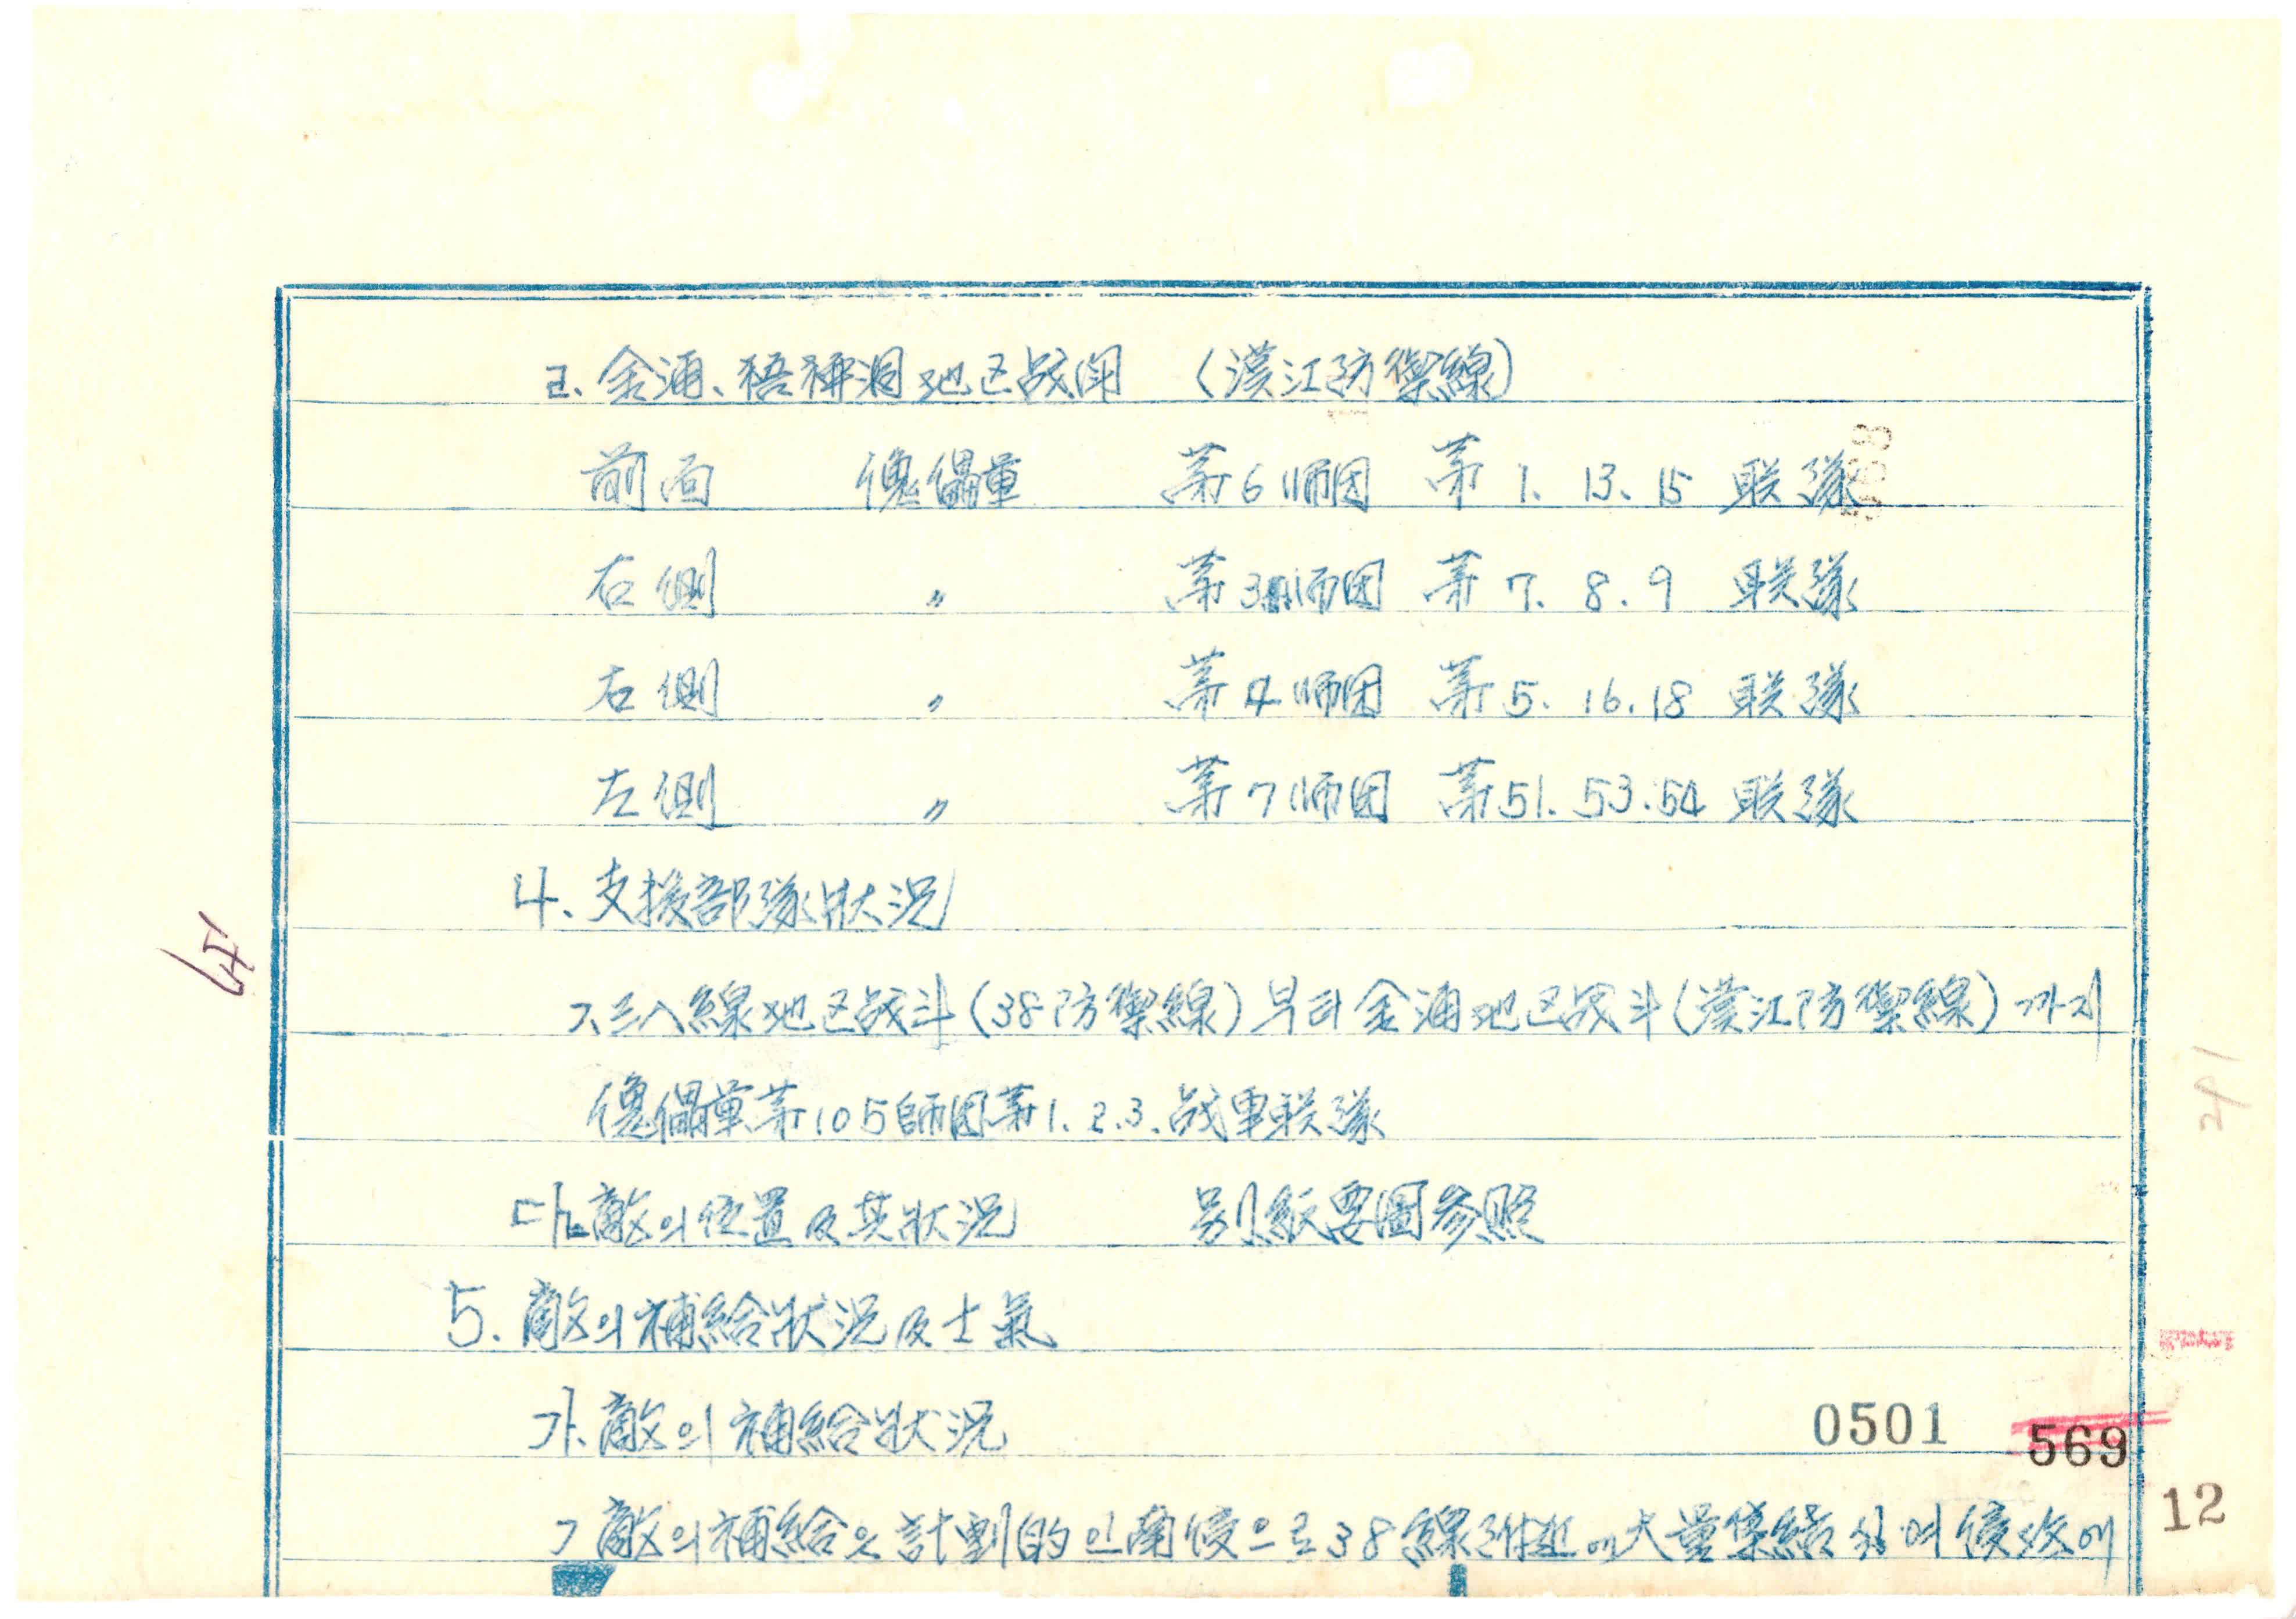 ㄹ. 金浦、梧柳洞地区战闘 (漢江防禦線)
前面 傀儡軍 第6师団 第 1. 13. 15 联隊
右側 〃 第3师団 第 7. 8. 9 联隊
右側 〃 第4师団 第 5. 16. 18 联隊
左側 〃 第7师団 第51. 53. 54 联隊
나. 支援部隊狀況
ㄱ. 三八線地区战斗(38防禦線) 부터 金浦地区战斗(漢江防禦線) 까지
傀儡軍第105師団第1. 2. 3. 战車联隊
다. 敵의 位置及其狀況 別紙要圖参照
5. 敵의 補給狀況及士氣
가. 敵의 補給狀況
0501 569
12
ㄱ 敵의 補給은 計劃的인 南侵으로 38線附近에 大量集結하여 侵攻에